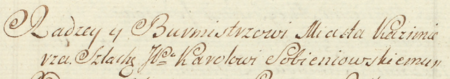 Radzcy y Burmistrzowi Miasta Kazimie
rza. Szlach: JPu Karolowi Sobieniowskiemu